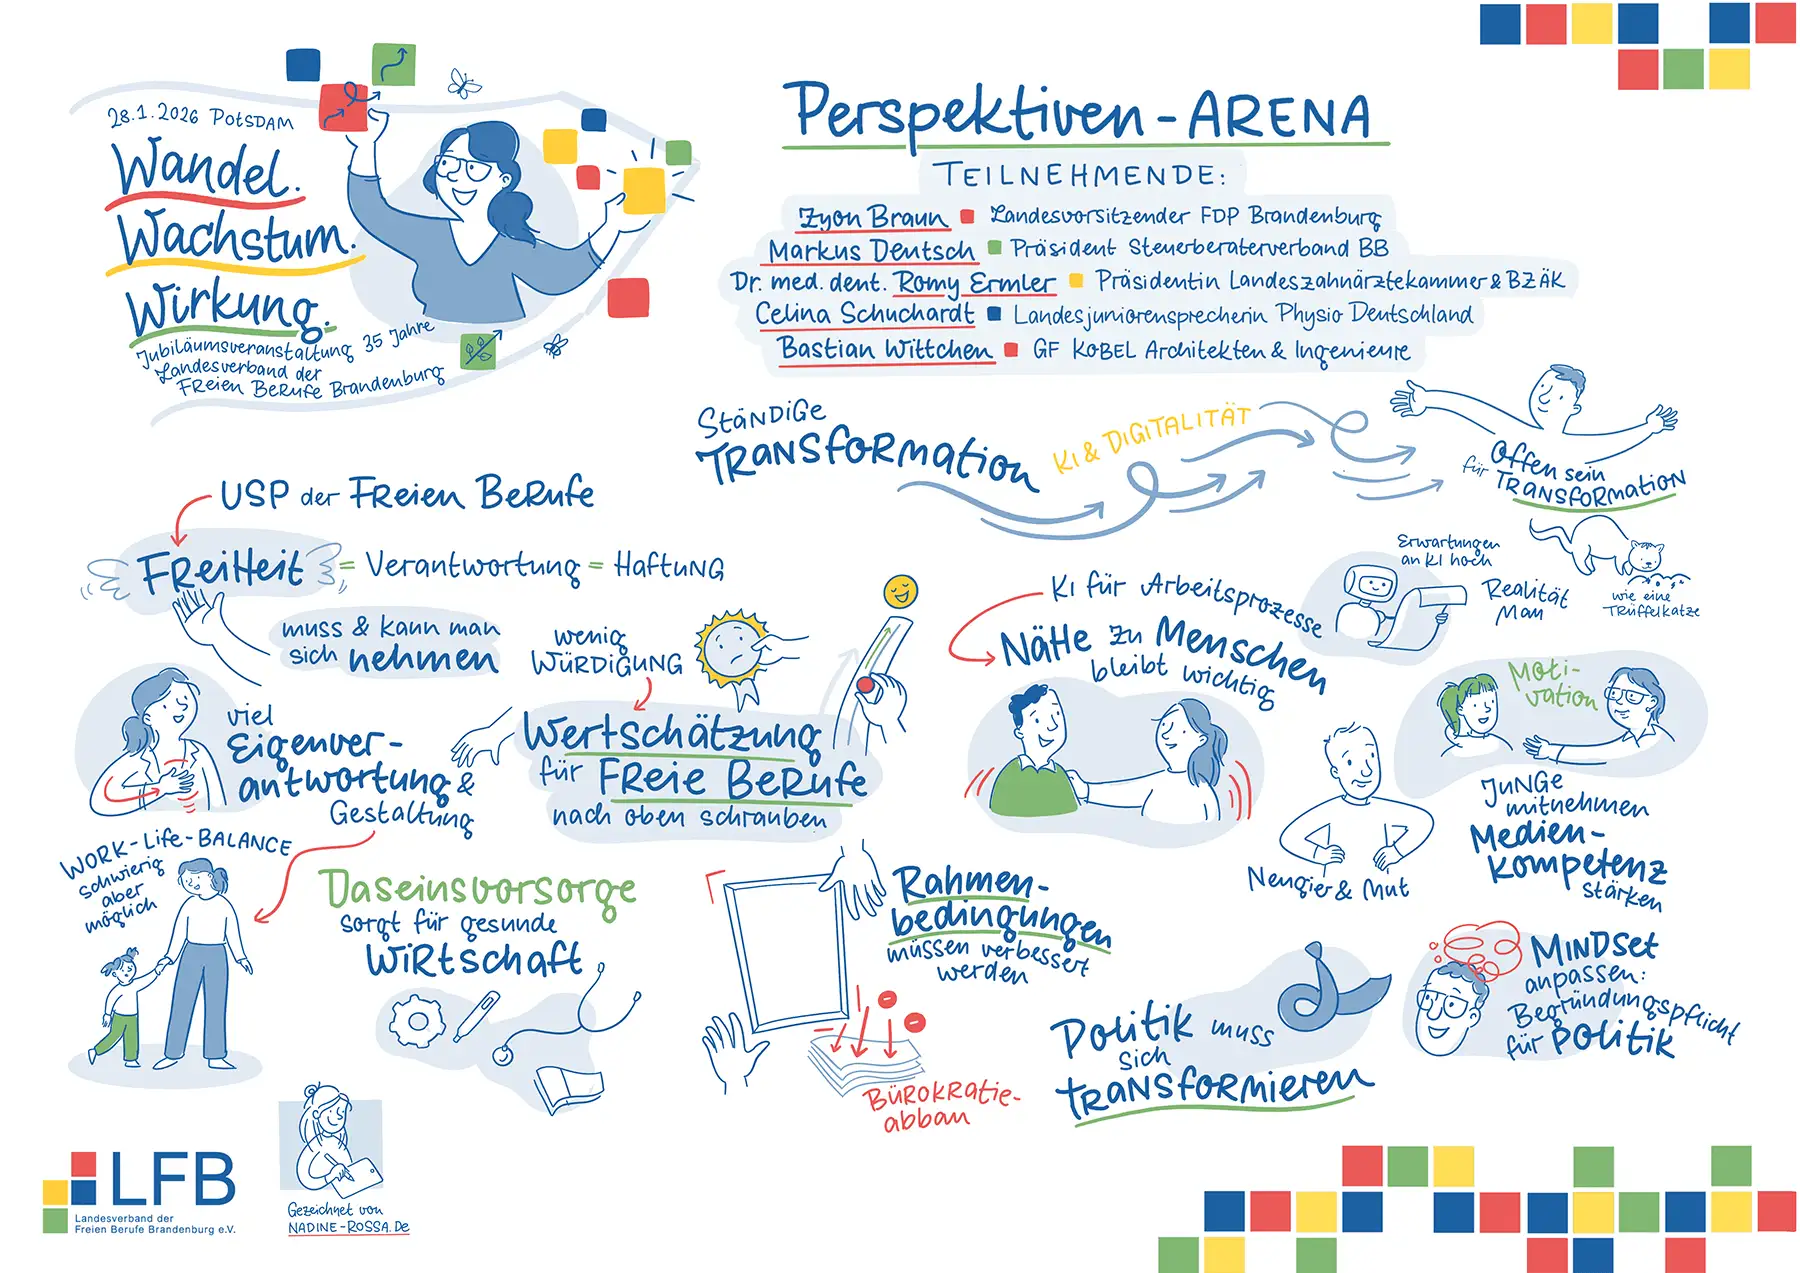 28.1.2026 Potsdam
Wandel.
Wachstum.
Wirkung.
Jubiläumsveranstaltung 35 Jahre
Landesverband der
Freien Berufe Brandenburg
Perspektiven-ARENA
TEILNEHMENDE:
Zyon Braun Landesvorsitzender FDP Brandenburg
Markus Deutsch Präsident Steuerberaterverband BB
Dr. med. dent. Romy Ermler Präsidentin Landeszahnärztekammer & BZÄK
Celina Schuchardt Landesjuniorensprecherin Physio Deutschland
Bastian Wittchen GF KOBEL Architekten & Ingenieure
Ständige
Transformation
KI & Digitalität
Offen sein
für Transformation
USP der Freien Berufe
Freiheit = Verantwortung = Haftung
muss & kann man
sich nehmen
viel
Eigenver-
antwortung &
Gestaltung
WORK-Life-BALANCE
schwierig
aber
möglich
wenig
WÜRDIGUNG
Wertschätzung
für Freie Berufe
nach oben schrauben
Daseinsvorsorge
sorgt für gesunde
Wirtschaft
KI für Arbeitsprozesse
Nähe zu Menschen
bleibt wichtig
Erwartungen
an KI hoch
Realität
Mau
wie eine
Trüffelkatze
Moti-
vation
Junge
mitnehmen
Medien-
kompetenz
stärken
Neugier & Mut
Rahmen-
bedingungen
müssen verbessert
werden
Bürokratie-
abbau
Politik muss
sich
transformieren
Mindset
anpassen:
Begründungspflicht
für Politik
LFB
Landesverband der
Freien Berufe Brandenburg e.V.
Gezeichnet von
NADINE-ROSSA.De